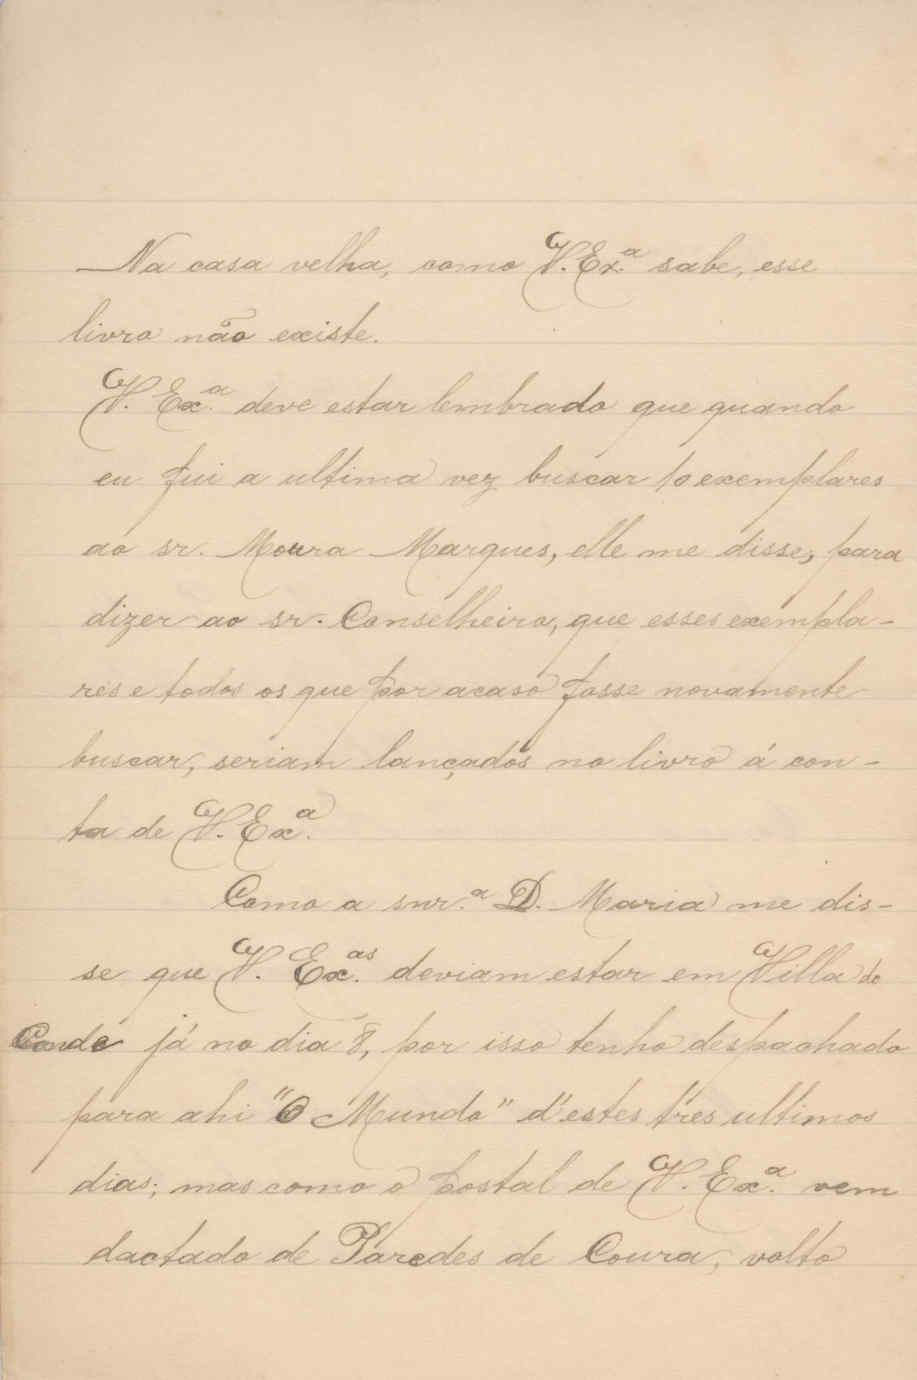 Na casa velha, como V. Ex.ª sabe, esse
livro não existe.
V. Ex.ª deve estar lembrado que quando
eu fui a ultima vez buscar 10 exemplares
ao sr. Moura Marques, elle me disse, para
dizer ao sr. Conselheiro, que esses exempla-
res e todos os que por acaso fosse novamente
buscar, seriam lançados no livro á con-
ta de V. Ex.ª.
Como a snr.ª D. Maria me dis-
se que V. Ex.as deviam estar em Villa do
Conde já no dia 8, por isso tenho despachado
para ahi "O Mundo" d'estes três ultimos
dias; mas como o postal de V. Ex.ª vem
dactado de Paredes de Coura, volto